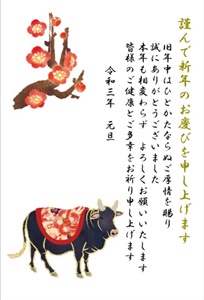 謹んで新年のお慶びを申し上げます
旧年中はひとかたならぬご厚情を賜り
誠にありがとうございました
本年も相変わらず よろしくお願いいたします
皆様のご健康とご多幸をお祈り申し上げます
令和三年 元旦